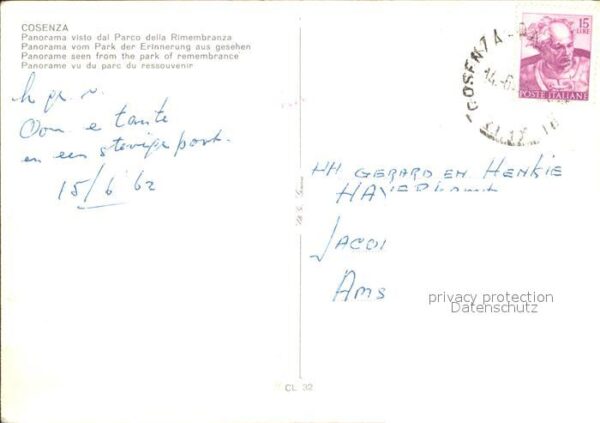 COSENZA
Panorama visto dal Parco della Rimembranza
Panorama vom Park der Erinnerung aus gesehen
Panorame seen from the park of remembrance
Panorame vu du parc du ressouvenir
Oom e tante
en een stevige poot.
15/6 '62
15
LIRE
POSTE ITALIANE
COSENZA
HH GERARD EN HENKIE
JACO
AMS
privacy protection
Datenschutz
CL 32